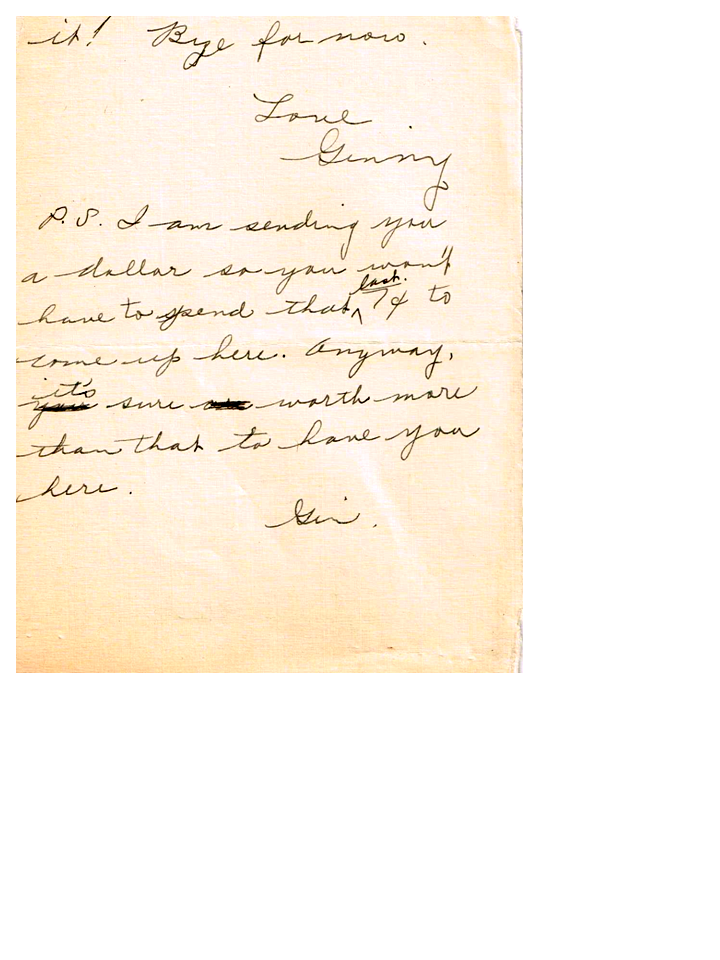 it! Bye for now.
Love
Ginny
P.S. I am sending you
a dollar so you won't
have to spend that last 7¢ to
come up here. Anyway,
it's sure worth more
than that to have you
here.
Gin.